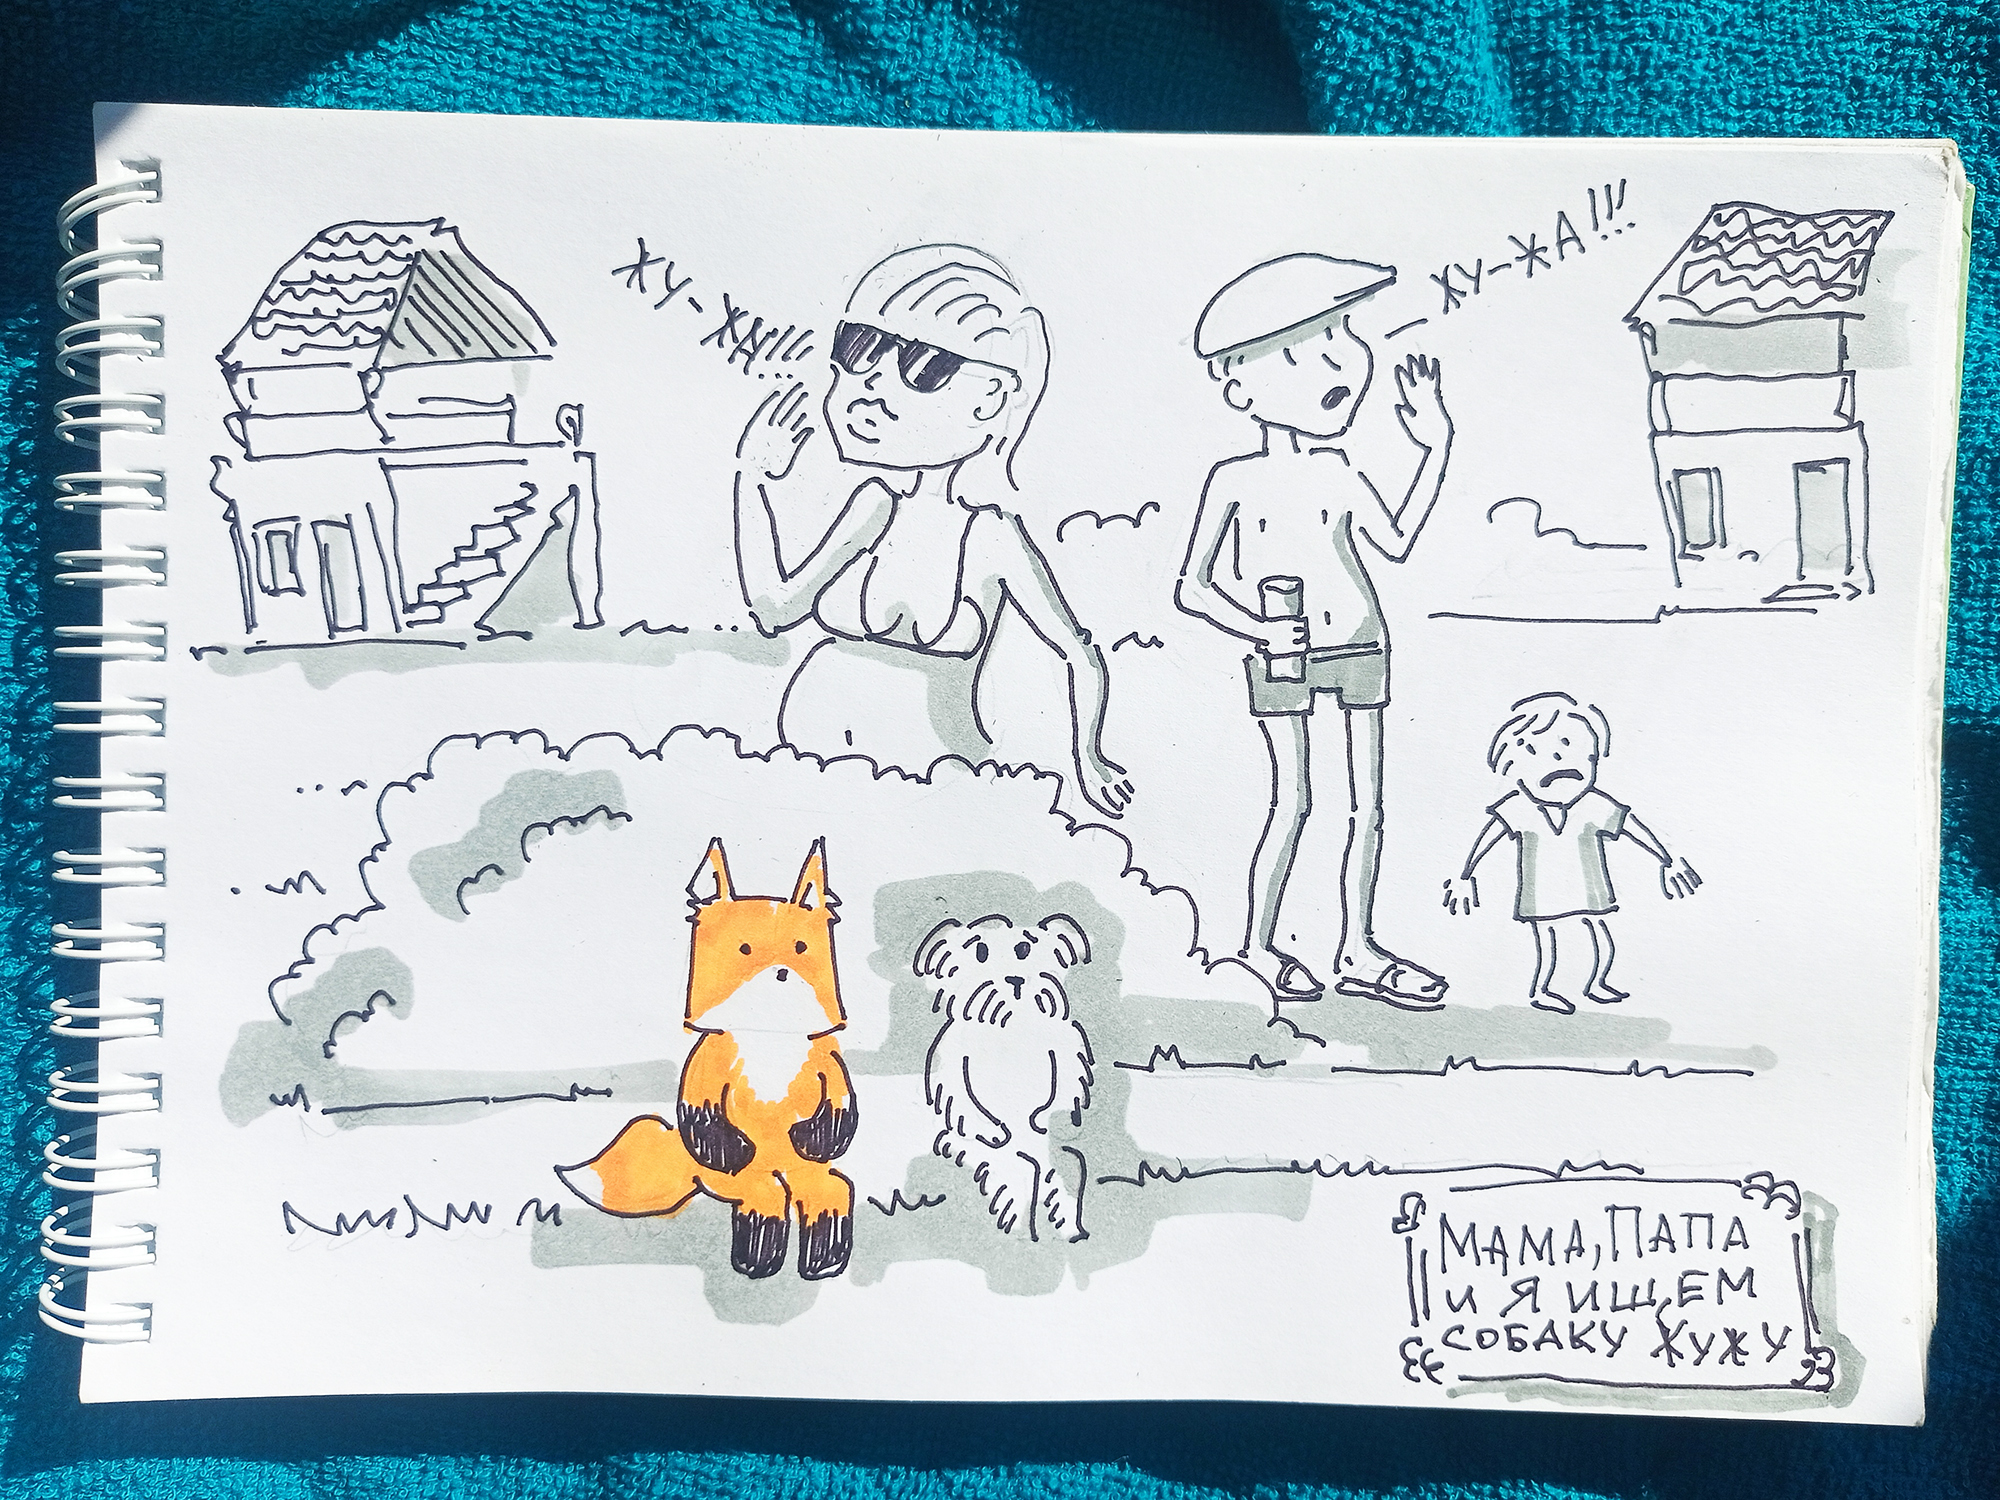 ЖУ-ЖА!!!
ЖУ-ЖА!!!
МАМА, ПАПА
И Я ИЩЕМ
СОБАКУ ЖУЖУ